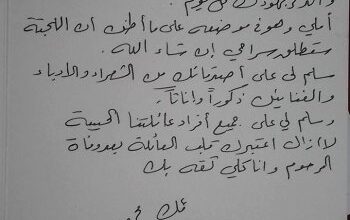 أملي وهو في موضعه على ما أظن أن اللجنة
ستطلق سراحي إن شاء الله.
سلم لي على أصدقائك من الشعراء والأدباء
والفنانين ذكوراً وإناثاً.
وسلم لي على جميع أفراد عائلتنا الحبيبة
لا أزال أعتبرك قلب العائلة بعد وفاة
المرحوم وأنا كلي ثقة بك
عمك